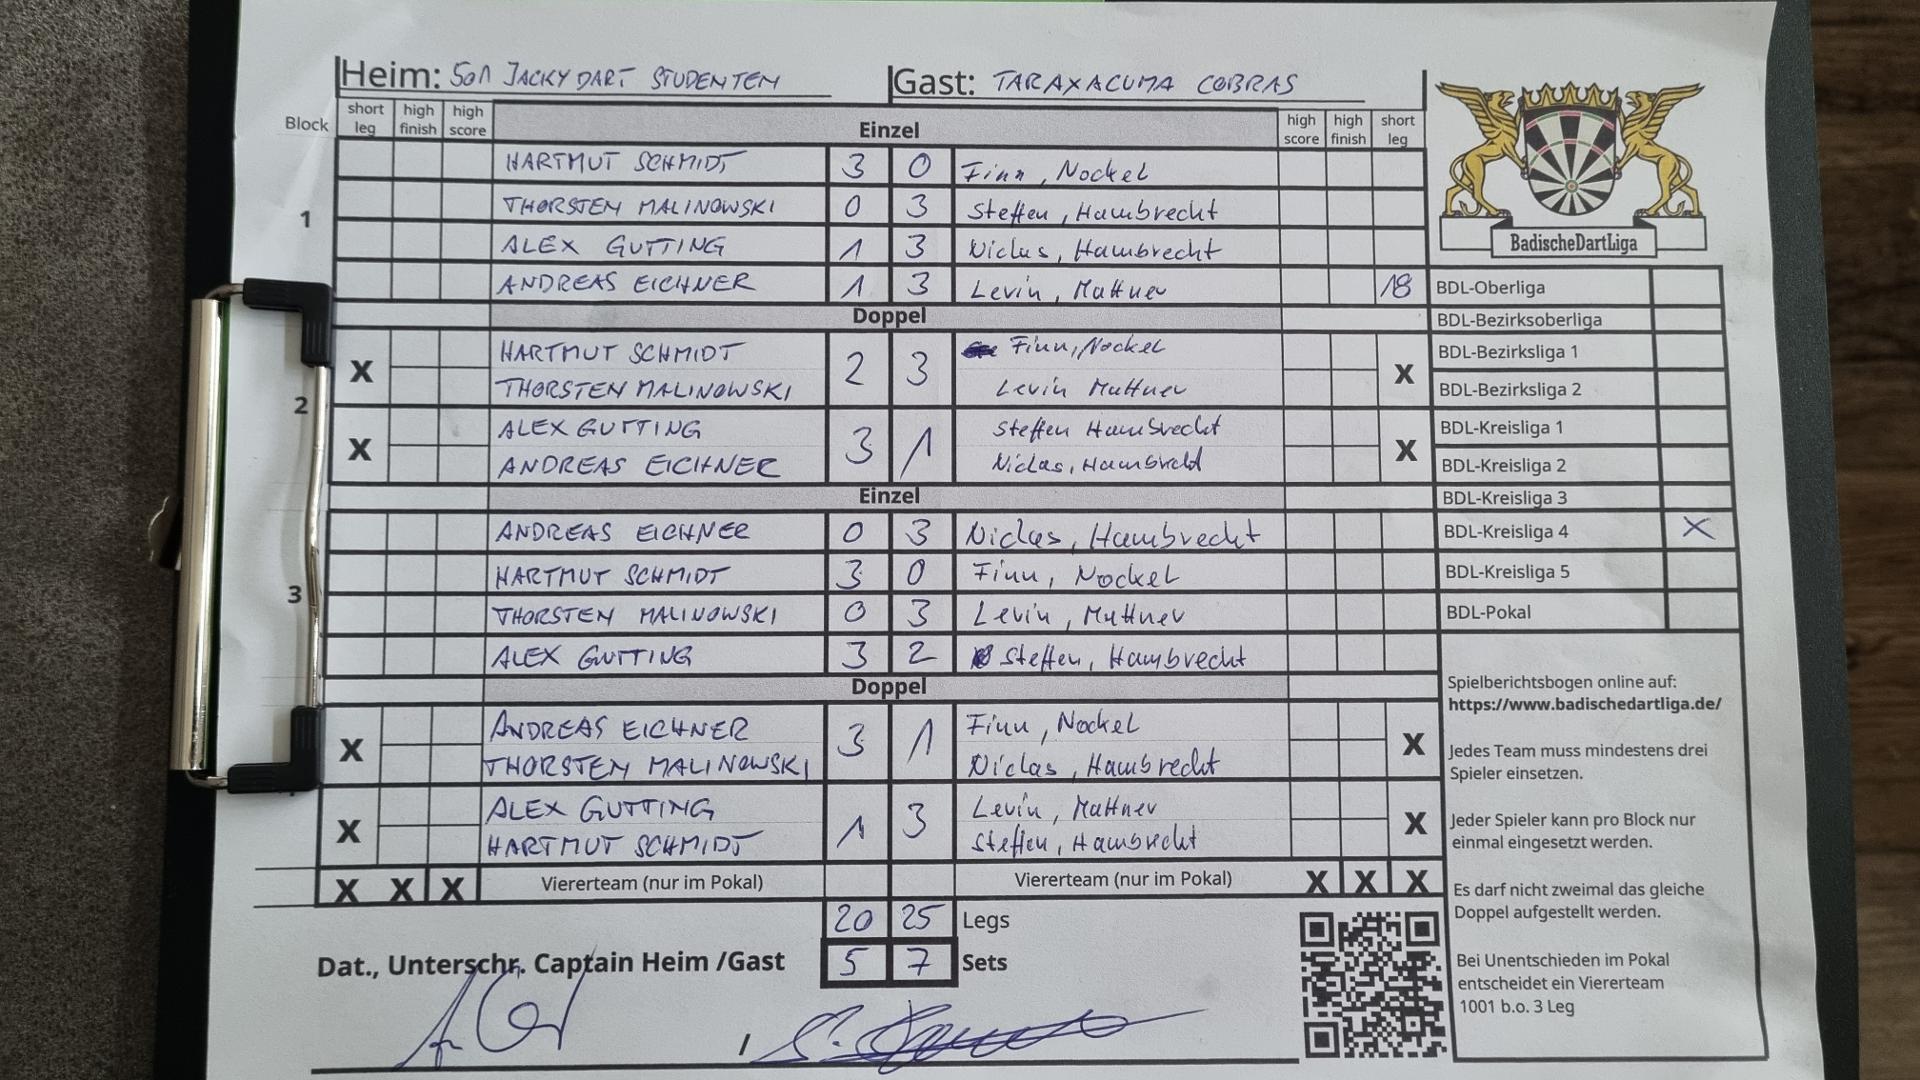 Heim: 501 JACKY DART STUDENTEN Gast: TARAXACUMA COBRAS
Block short leg high finish high score Einzel high score high finish short leg
HARTMUT SCHMIDT 3 0 Finn, Nockel
1 THORSTEN MALINOWSKI 0 3 Steffen, Hambrecht
ALEX GUTTING 1 3 Niclas, Hambrecht
ANDREAS EICHNER 1 3 Levin, Muttner 18
Doppel
X HARTMUT SCHMIDT 2 3 Finn, Nockel X
THORSTEN MALINOWSKI Levin Muttner
2
X ALEX GUTTING 3 1 Steffen Hambrecht X
ANDREAS EICHNER Niclas, Hambrecht
Einzel
ANDREAS EICHNER 0 3 Niclas, Hambrecht
HARTMUT SCHMIDT 3 0 Finn, Nockel
3 THORSTEN MALINOWSKI 0 3 Levin, Muttner
ALEX GUTTING 3 2 Steffen, Hambrecht
Doppel
X ANDREAS EICHNER 3 1 Finn, Nockel X
THORSTEN MALINOWSKI Niclas, Hambrecht
X ALEX GUTTING 1 3 Levin, Muttner X
HARTMUT SCHMIDT Steffen, Hambrecht
X X X Viererteam (nur im Pokal) Viererteam (nur im Pokal) X X X
20 25 Legs
5 7 Sets
Dat., Unterschr. Captain Heim /Gast
/
BadischeDartLiga
BDL-Oberliga
BDL-Bezirksoberliga
BDL-Bezirksliga 1
BDL-Bezirksliga 2
BDL-Kreisliga 1
BDL-Kreisliga 2
BDL-Kreisliga 3
BDL-Kreisliga 4 X
BDL-Kreisliga 5
BDL-Pokal
Spielberichtsbogen online auf:
https://www.badischedartliga.de/
Jedes Team muss mindestens drei
Spieler einsetzen.
Jeder Spieler kann pro Block nur
einmal eingesetzt werden.
Es darf nicht zweimal das gleiche
Doppel aufgestellt werden.
Bei Unentschieden im Pokal
entscheidet ein Viererteam
1001 b.o. 3 Leg